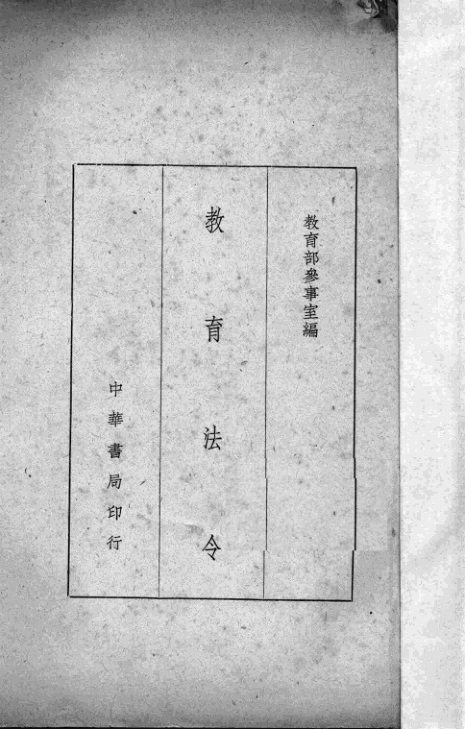 教育部參事室編
教育法令
中華書局印行